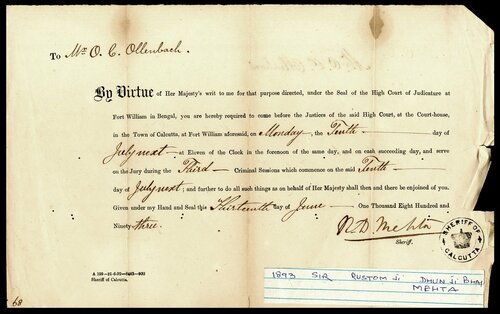 To Mr O. C. Ollenbach.
By Virtue of Her Majesty's writ to me for that purpose directed, under the Seal of the High Court of Judicature at
Fort William in Bengal, you are hereby required to come before the Justices of the said High Court, at the Court-house,
in the Town of Calcutta, at Fort William aforesaid, on Monday, the Tenth day of
July next at Eleven of the Clock in the forenoon of the same day, and on each succeeding day, and serve
on the Jury during the Third Criminal Sessions which commence on the said Tenth
day of July next; and further to do all such things as on behalf of Her Majesty shall then and there be enjoined of you.
Given under my Hand and Seal this Thirteenth day of June One Thousand Eight Hundred and
Ninety three.
R. D. Mehta
Sheriff.
SHERIFF OF CALCUTTA
Sheriff of Calcutta.
1893 SIR RUSTOM JI DHUN JI BHAI
MEHTA
68